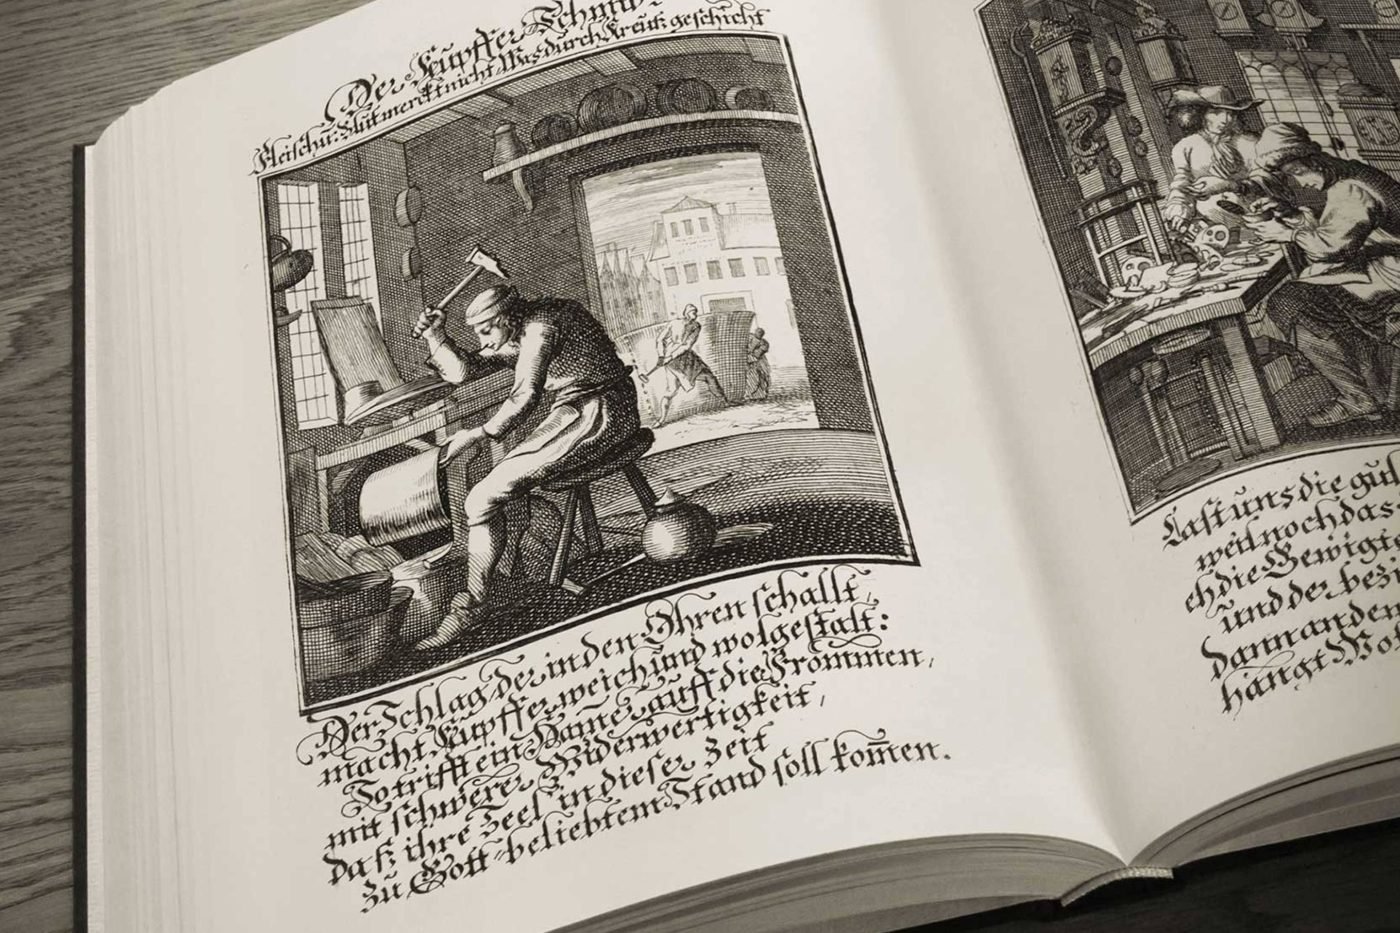 Der Kupffer Schmid.
Fleisch u: Blut merckt nicht Was durch Kreutz geschicht
Der Schlag der in den Ohren schallt,
macht Kupffer weich und wolgestalt:
So trifft ein Hamer auff die Frommen,
mit schwerer Widerwertigkeit,
daß ihre Seel in dieser Zeit
zu Gott-beliebtem Stand soll kom̅en.
Last uns die
weil noch das
eh die
und der
dann
hängt